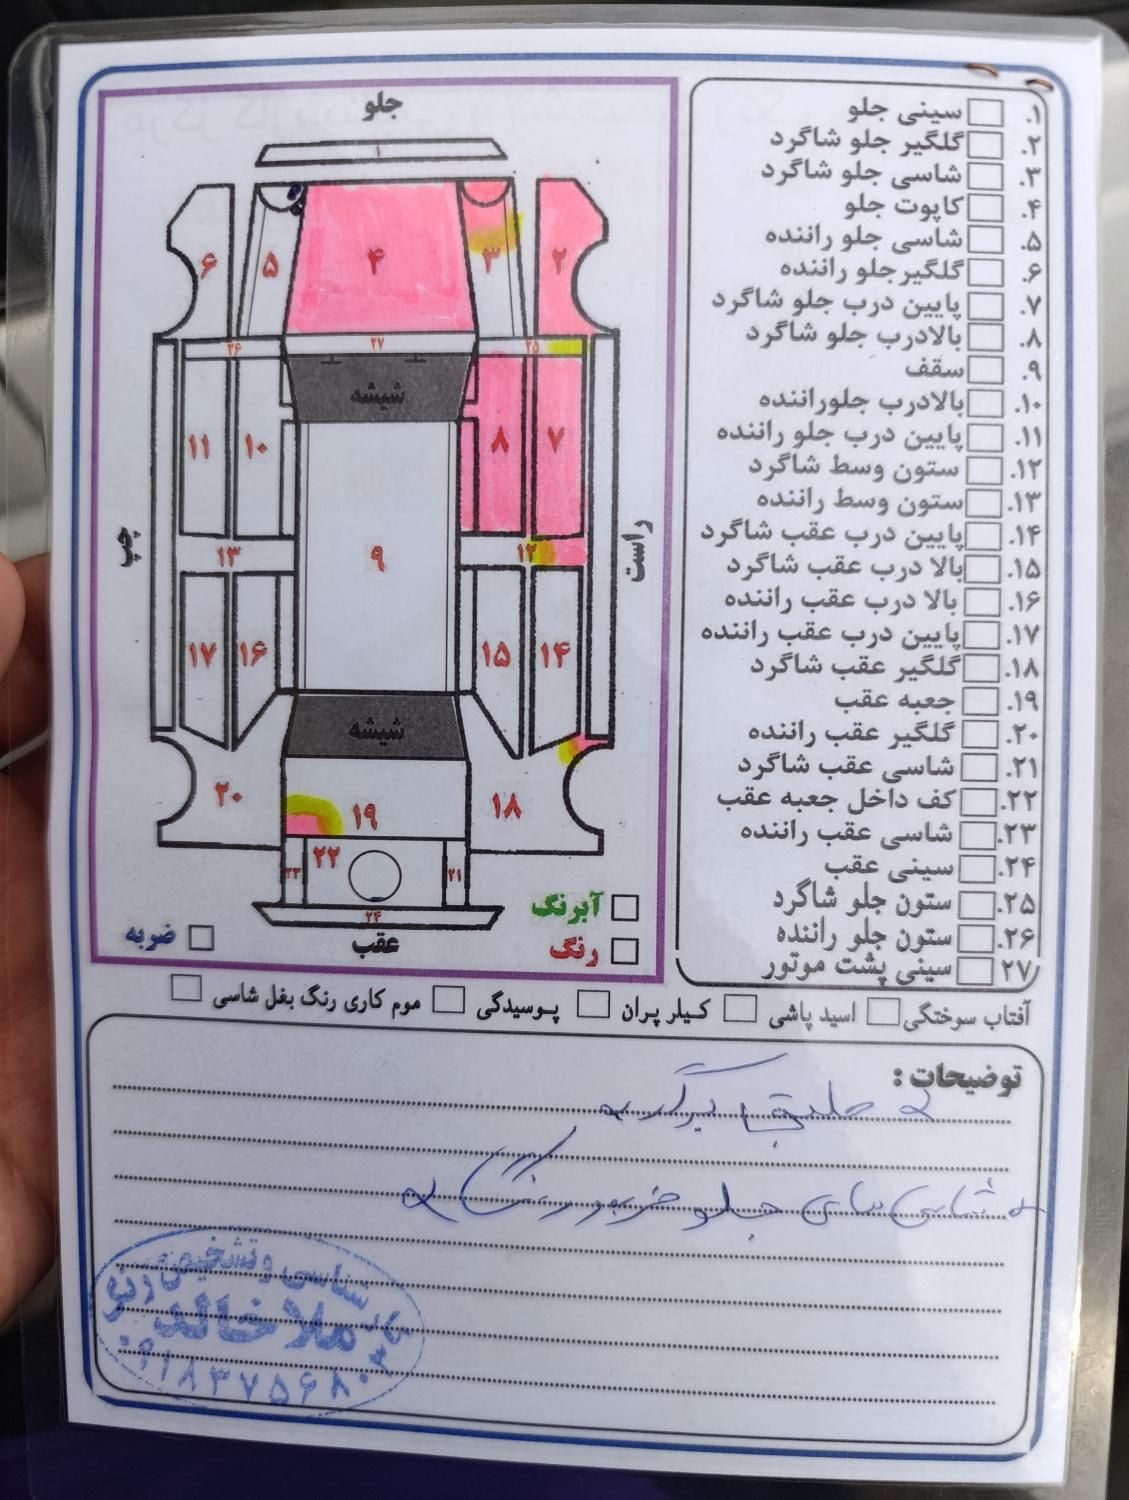 جلو
۱
۶
۵
۴
۳
۲
۲۶
۲۷
۲۵
شیشه
۱۱
۱۰
۸
۷
۹
چپ
راست
۱۳
۱۲
۱۷
۱۶
۱۵
۱۴
شیشه
۲۰
۱۹
۱۸
۲۳
۲۲
۲۱
۲۴
عقب
آبرنگ
رنگ
ضربه
۱. سینی جلو
۲. گلگیر جلو شاگرد
۳. شاسی جلو شاگرد
۴. کاپوت جلو
۵. شاسی جلو راننده
۶. گلگیرجلو راننده
۷. پایین درب جلو شاگرد
۸. بالادرب جلو شاگرد
۹. سقف
۱۰. بالادرب جلوراننده
۱۱. پایین درب جلو راننده
۱۲. ستون وسط شاگرد
۱۳. ستون وسط راننده
۱۴. پایین درب عقب شاگرد
۱۵. بالا درب عقب شاگرد
۱۶. بالا درب عقب راننده
۱۷. پایین درب عقب راننده
۱۸. گلگیر عقب شاگرد
۱۹. جعبه عقب
۲۰. گلگیر عقب راننده
۲۱. شاسی عقب شاگرد
۲۲. کف داخل جعبه عقب
۲۳. شاسی عقب راننده
۲۴. سینی عقب
۲۵. ستون جلو شاگرد
۲۶. ستون جلو راننده
۲۷. سینی پشت موتور
آفتاب سوختگی اسید پاشی کیلر پران پوسیدگی موم کاری رنگ بغل شاسی
توضیحات :
شاسی های جلو
کارشناسی و تشخیص رنگ
ملا خالد